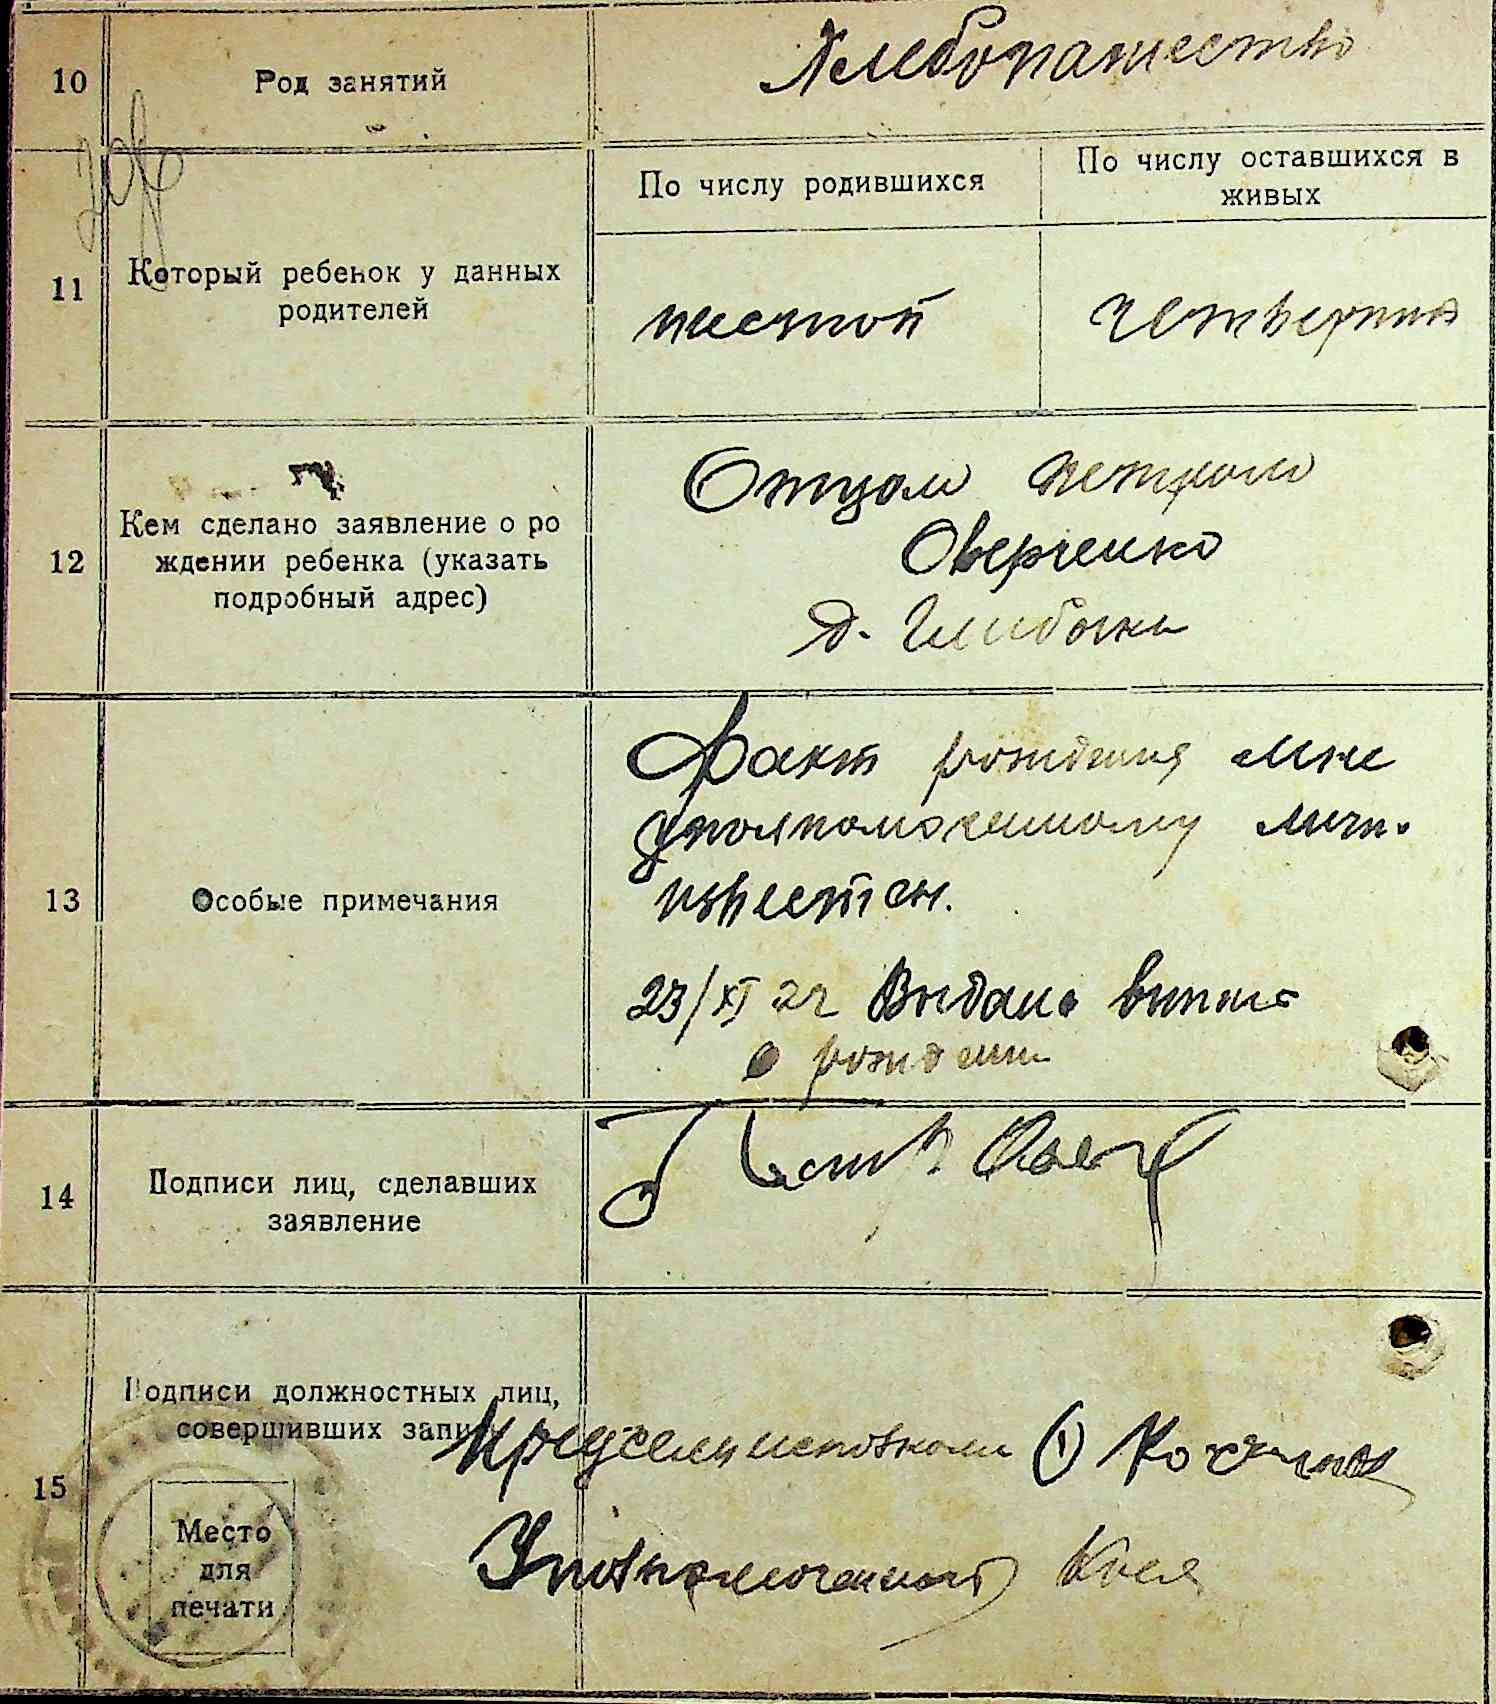 10
Род занятий
Хлебопашество
11
Который ребенок у данных
родителей
По числу родившихся
По числу оставшихся в
живых
шестой
12
Кем сделано заявление о ро
ждении ребенка (указать
подробный адрес)
Отцом петром
Оверченко
13
Особые примечания
Факт рождения мне
уполномоченному личн.
известен.
23/XI 24 Выдана
о рожден
14
Подписи лиц, сделавших
заявление
15
Подписи должностных лиц,
совершивших запись
Место
для
печати
Предсельисполкома
Уполномоченный